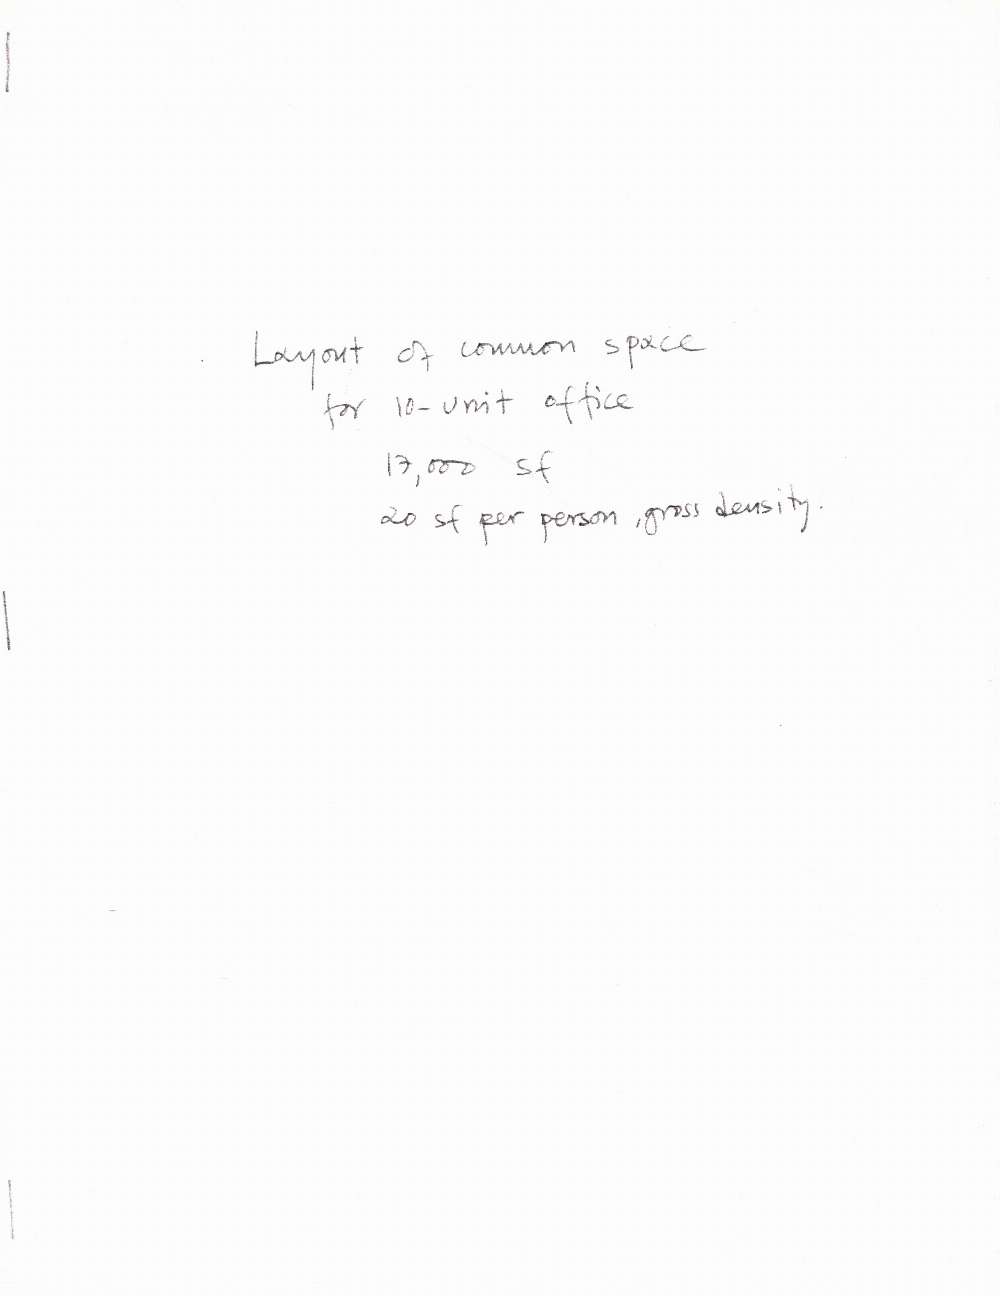 Layout of common space
for 10-unit office
17,000 sf
20 sf per person, gross density.